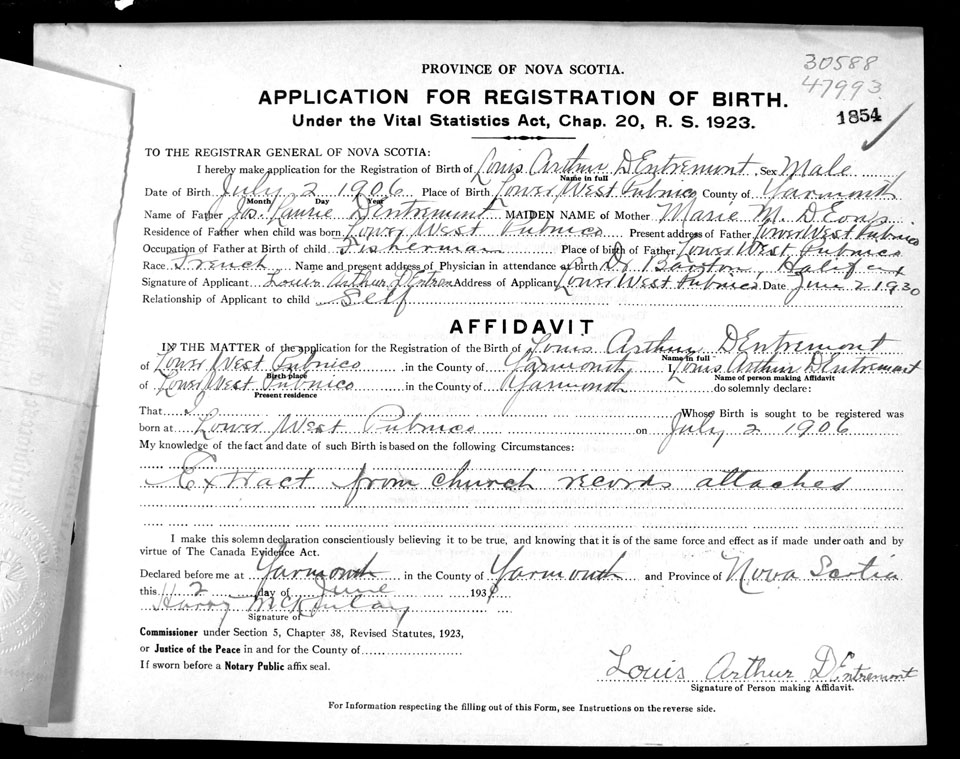 30588
47993
PROVINCE OF NOVA SCOTIA.
APPLICATION FOR REGISTRATION OF BIRTH.
1854
Under the Vital Statistics Act, Chap. 20, R. S. 1923.
TO THE REGISTRAR GENERAL OF NOVA SCOTIA:
I hereby make application for the Registration of Birth of Louis Arthur D'Entremont Sex Male
Name in full
Date of Birth July 2 1906 Place of Birth Lower West Pubnico County of Yarmouth
Month Day Year
Name of Father Jos. D'Entremont MAIDEN NAME of Mother Marie M. D'Eon
Residence of Father when child was born Lower West Pubnico Present address of Father Lower West Pubnico
Occupation of Father at Birth of child Fisherman Place of birth of Father Lower West Pubnico
Race French Name and present address of Physician in attendance at Birth Dr Halifax
Signature of Applicant Louis Arthur D'Entremont Address of Applicant Lower West Pubnico Date June 2 1930
Relationship of Applicant to child Self
AFFIDAVIT
IN THE MATTER of the application for the Registration of the Birth of Louis Arthur D'Entremont
Name in full
of Lower West Pubnico in the County of Yarmouth I Louis Arthur D'Entremont
Birth place Name of person making Affidavit
of Lower West Pubnico in the County of Yarmouth do solemnly declare:
Present residence
That I Whose Birth is sought to be registered was
born at Lower West Pubnico on July 2 1906
My knowledge of the fact and date of such Birth is based on the following Circumstances:
Extract from church records attached
I make this solemn declaration conscientiously believing it to be true, and knowing that it is of the same force and effect as if made under oath and by
virtue of The Canada Evidence Act.
Declared before me at Yarmouth in the County of Yarmouth and Province of Nova Scotia
this 2 day of June 193
Harry McKinlay
Signature of
Commissioner under Section 5, Chapter 38, Revised Statutes, 1923,
or Justice of the Peace in and for the County of
If sworn before a Notary Public affix seal.
Louis Arthur D'Entremont
Signature of Person making Affidavit.
For Information respecting the filling out of this Form, see Instructions on the reverse side.